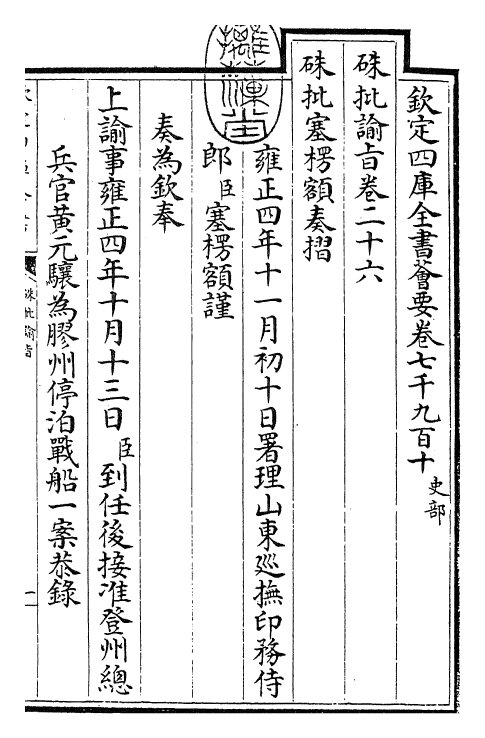 欽定四庫全書薈要卷七千九百十 史部
硃批諭旨卷二十六
硃批塞楞額奏摺
雍正四年十一月初十日署理山東廵撫印務侍
郎臣塞楞額謹
奏為欽奉
上諭事雍正四年十月十三日臣到任後接准登州總
兵官黃元驤為膠州停泊戰船一案恭錄
硃批諭旨
一